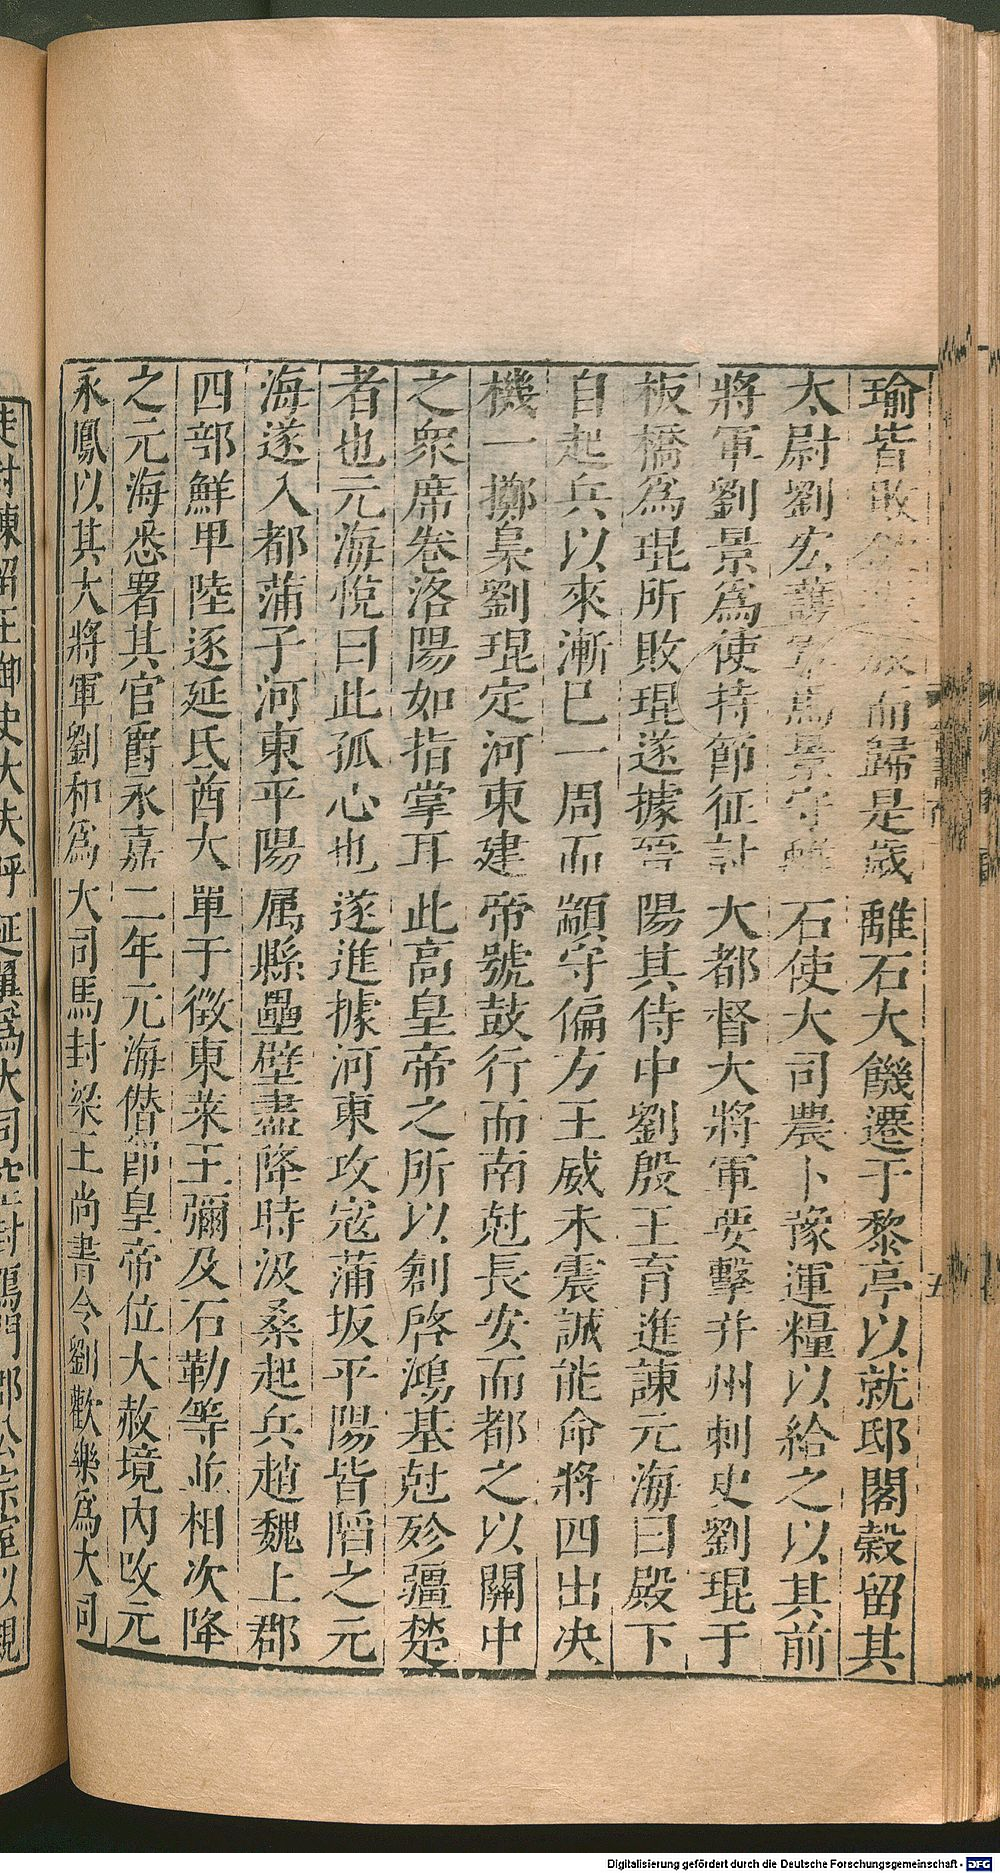 瑜皆敗而歸是歲離石大饑遷于黎亭以就邸閣穀留其
太尉劉宏護軍馬景守離石使大司農卜豫運糧以給之以其前
將軍劉景爲使持節征討大都督大將軍要擊并州刺史劉琨于
板橋爲琨所敗琨遂據晉陽其侍中劉殷王育進諫元海曰殿下
自起兵以來漸已一周而顓守偏方王威未震誠能命將四出决
機一擲梟劉琨定河東建帝號鼓行而南尅長安而都之以關中
之衆席卷洛陽如指掌耳此高皇帝之所以創啓鴻基尅殄疆楚
者也元海悅曰此孤心也遂進據河東攻寇蒲坂平陽皆陷之元
海遂入都蒲子河東平陽属縣壘壁盡降時汲桑起兵趙魏上郡
四部鮮卑陸逐延氐酋大單于徵東萊王彌及石勒等並相次降
之元海悉署其官爵永嘉二年元海僣卽皇帝位大赦境內改元
永鳳以其大將軍劉和爲大司馬封梁王尚書令劉歡樂爲大司
五
徒封陳留王御史大夫呼延翼爲大司空封鴈門郡公宗室以親
Digitalisierung gefördert durch die Deutsche Forschungsgemeinschaft - DFG